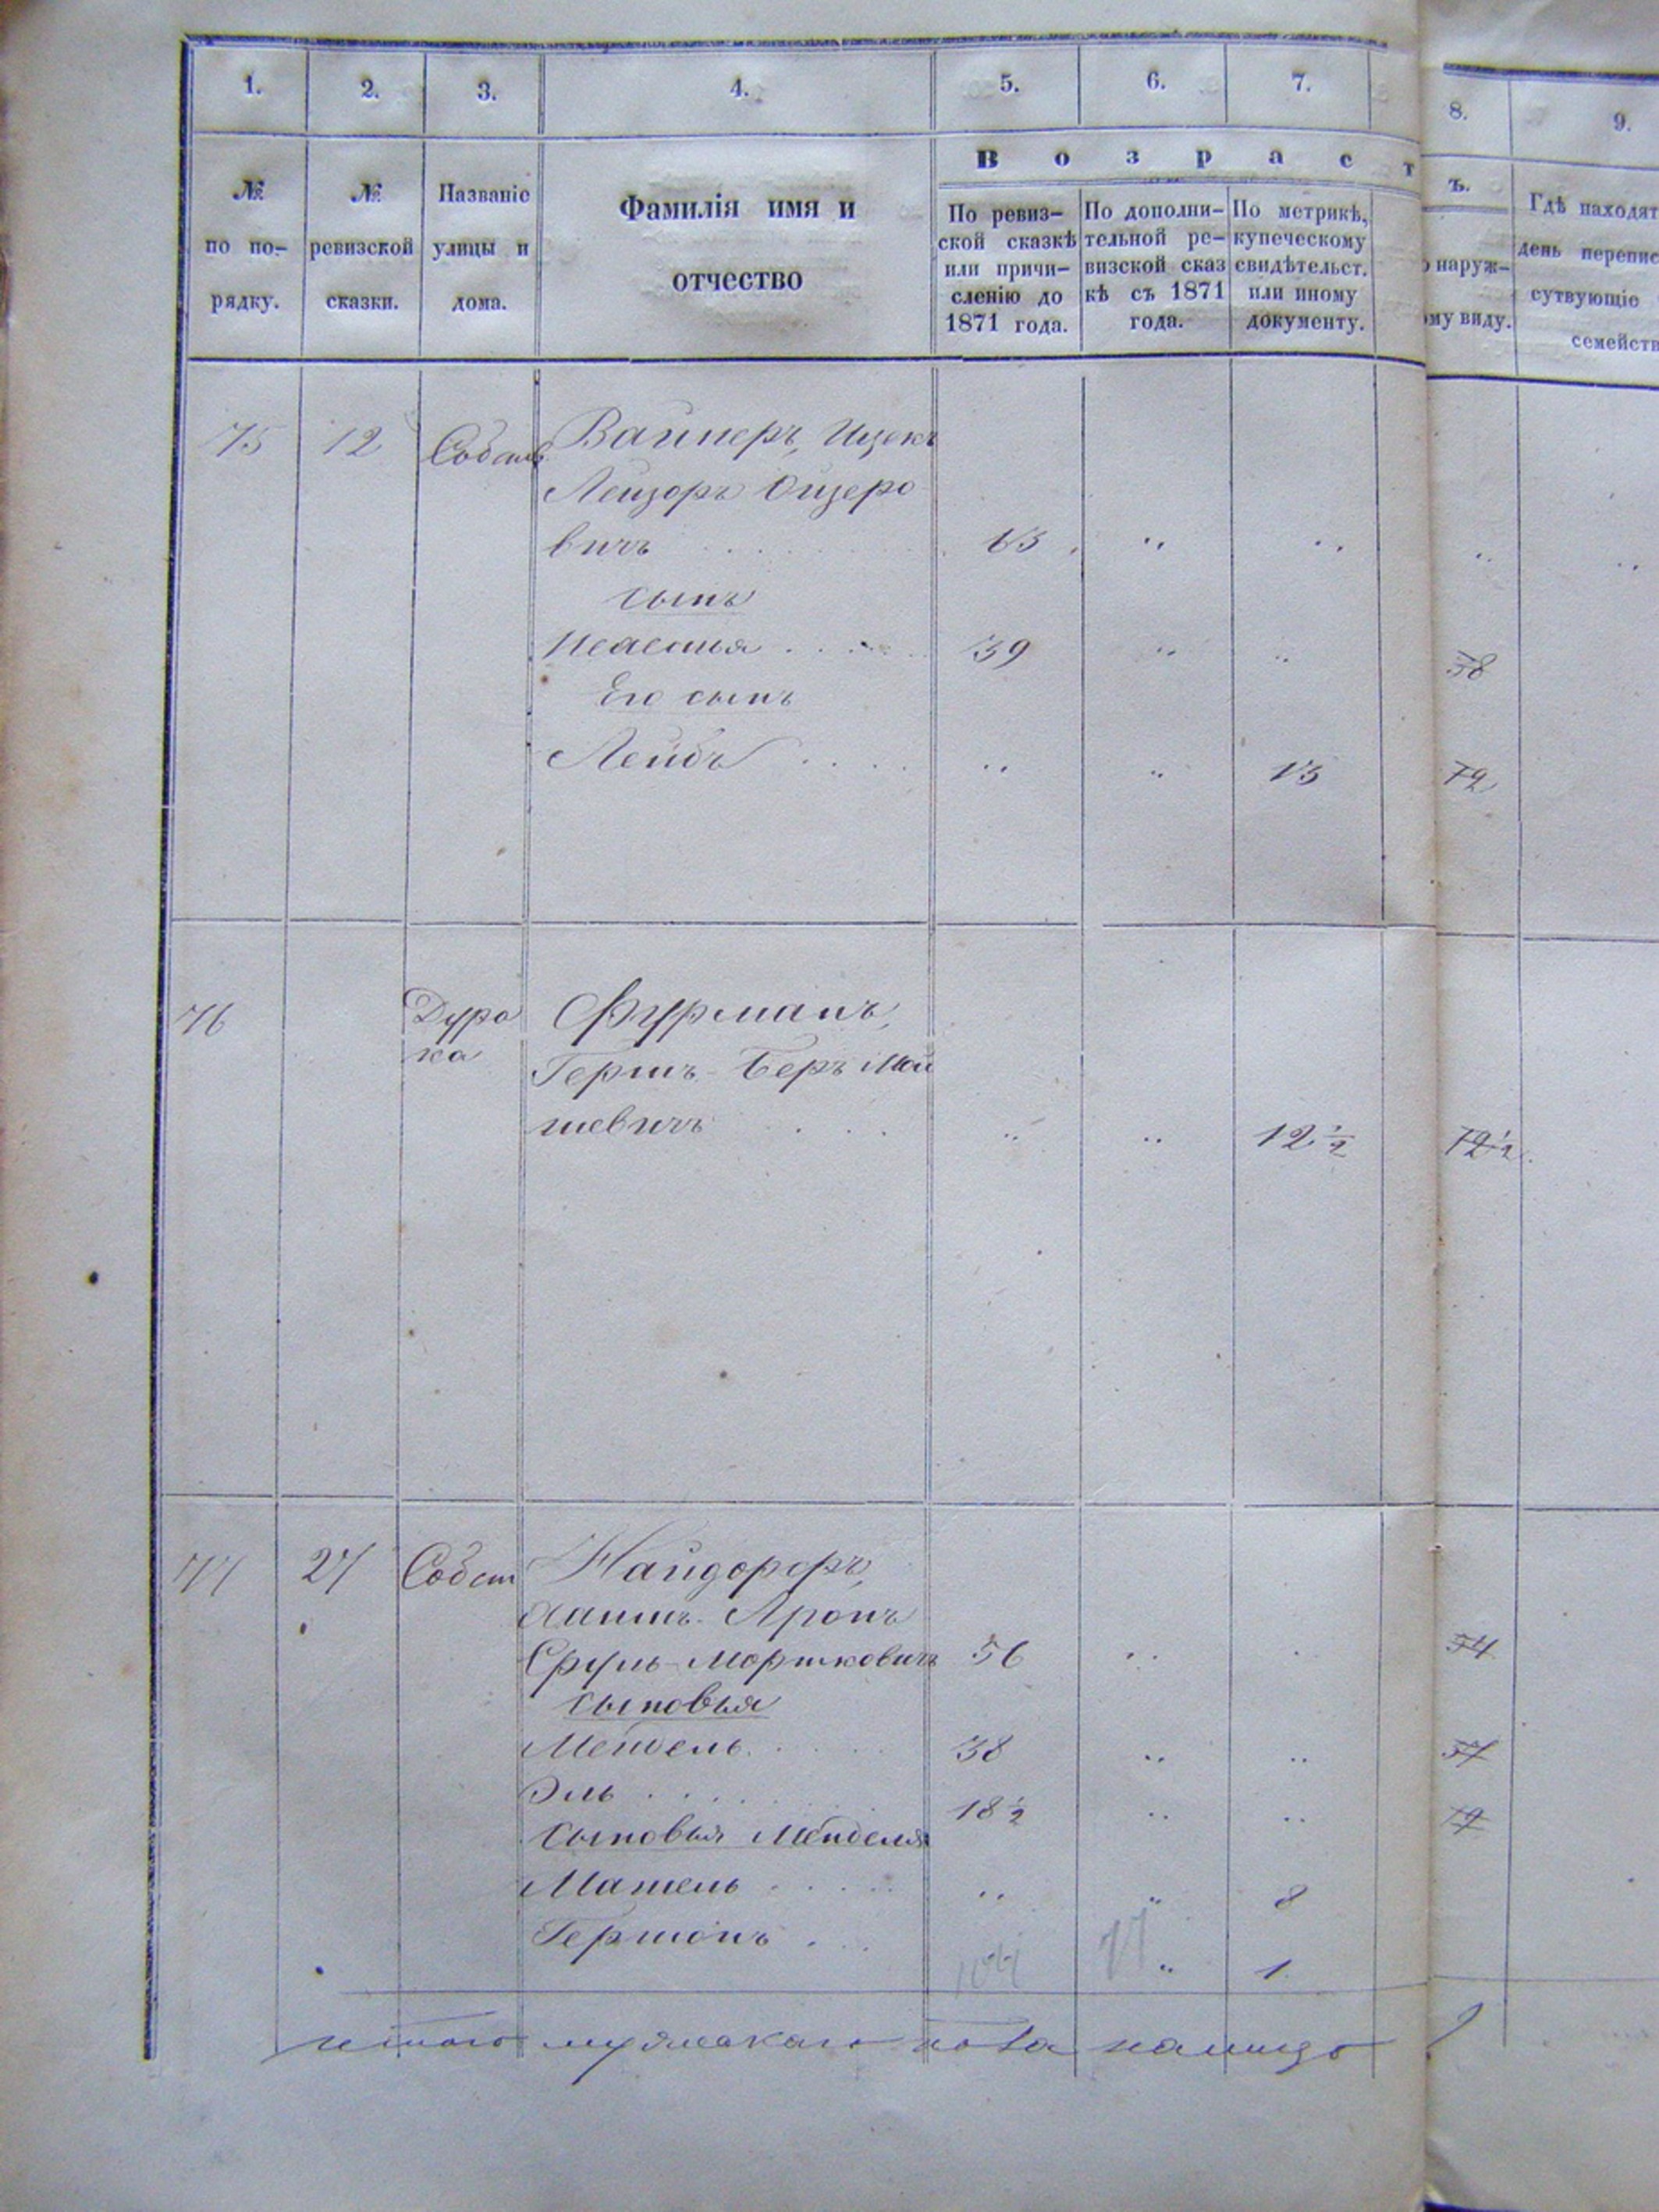 1. 2. 3. 4. 5. 6. 7. 8. 9.
В о з р а с т ъ.
№ по по-рядку.
№ ревизской сказки.
Названіе улицы и дома.
Фамилія имя и отчество
По ревиз-ской сказкѣ или причи-сленію до 1871 года.
По дополни-тельной ре-визской сказ кѣ съ 1871 года.
По метрикѣ, купеческому свидѣтельст. или иному документу.
наруж-
му виду.
Гдѣ находят
день перепис
сутвующіе
семейств
75 12 Собств. Вайнеръ, Ицекъ
Лейзоръ Ойзеро
вичъ . . . 63 " " " "
сынъ
39 " " 38
Его сынъ
Лейбъ . . . . " " 13 12
76 Дура Фурманъ,
ка Гершъ-Беръ Мой
шевичъ . . . " " 12½ 12½
77 27 Собст Найдорфъ,
Аронъ
Сруль-Моршковичъ 56 " " 54
сыновья
Мендель . . . 38 " " 37
Эль . . . . 18½ " " 19
сыновья Менделя
Матель . . . . " " 8
Гершонъ . . . 104 17 " 1
итого мужескаго пола налицо